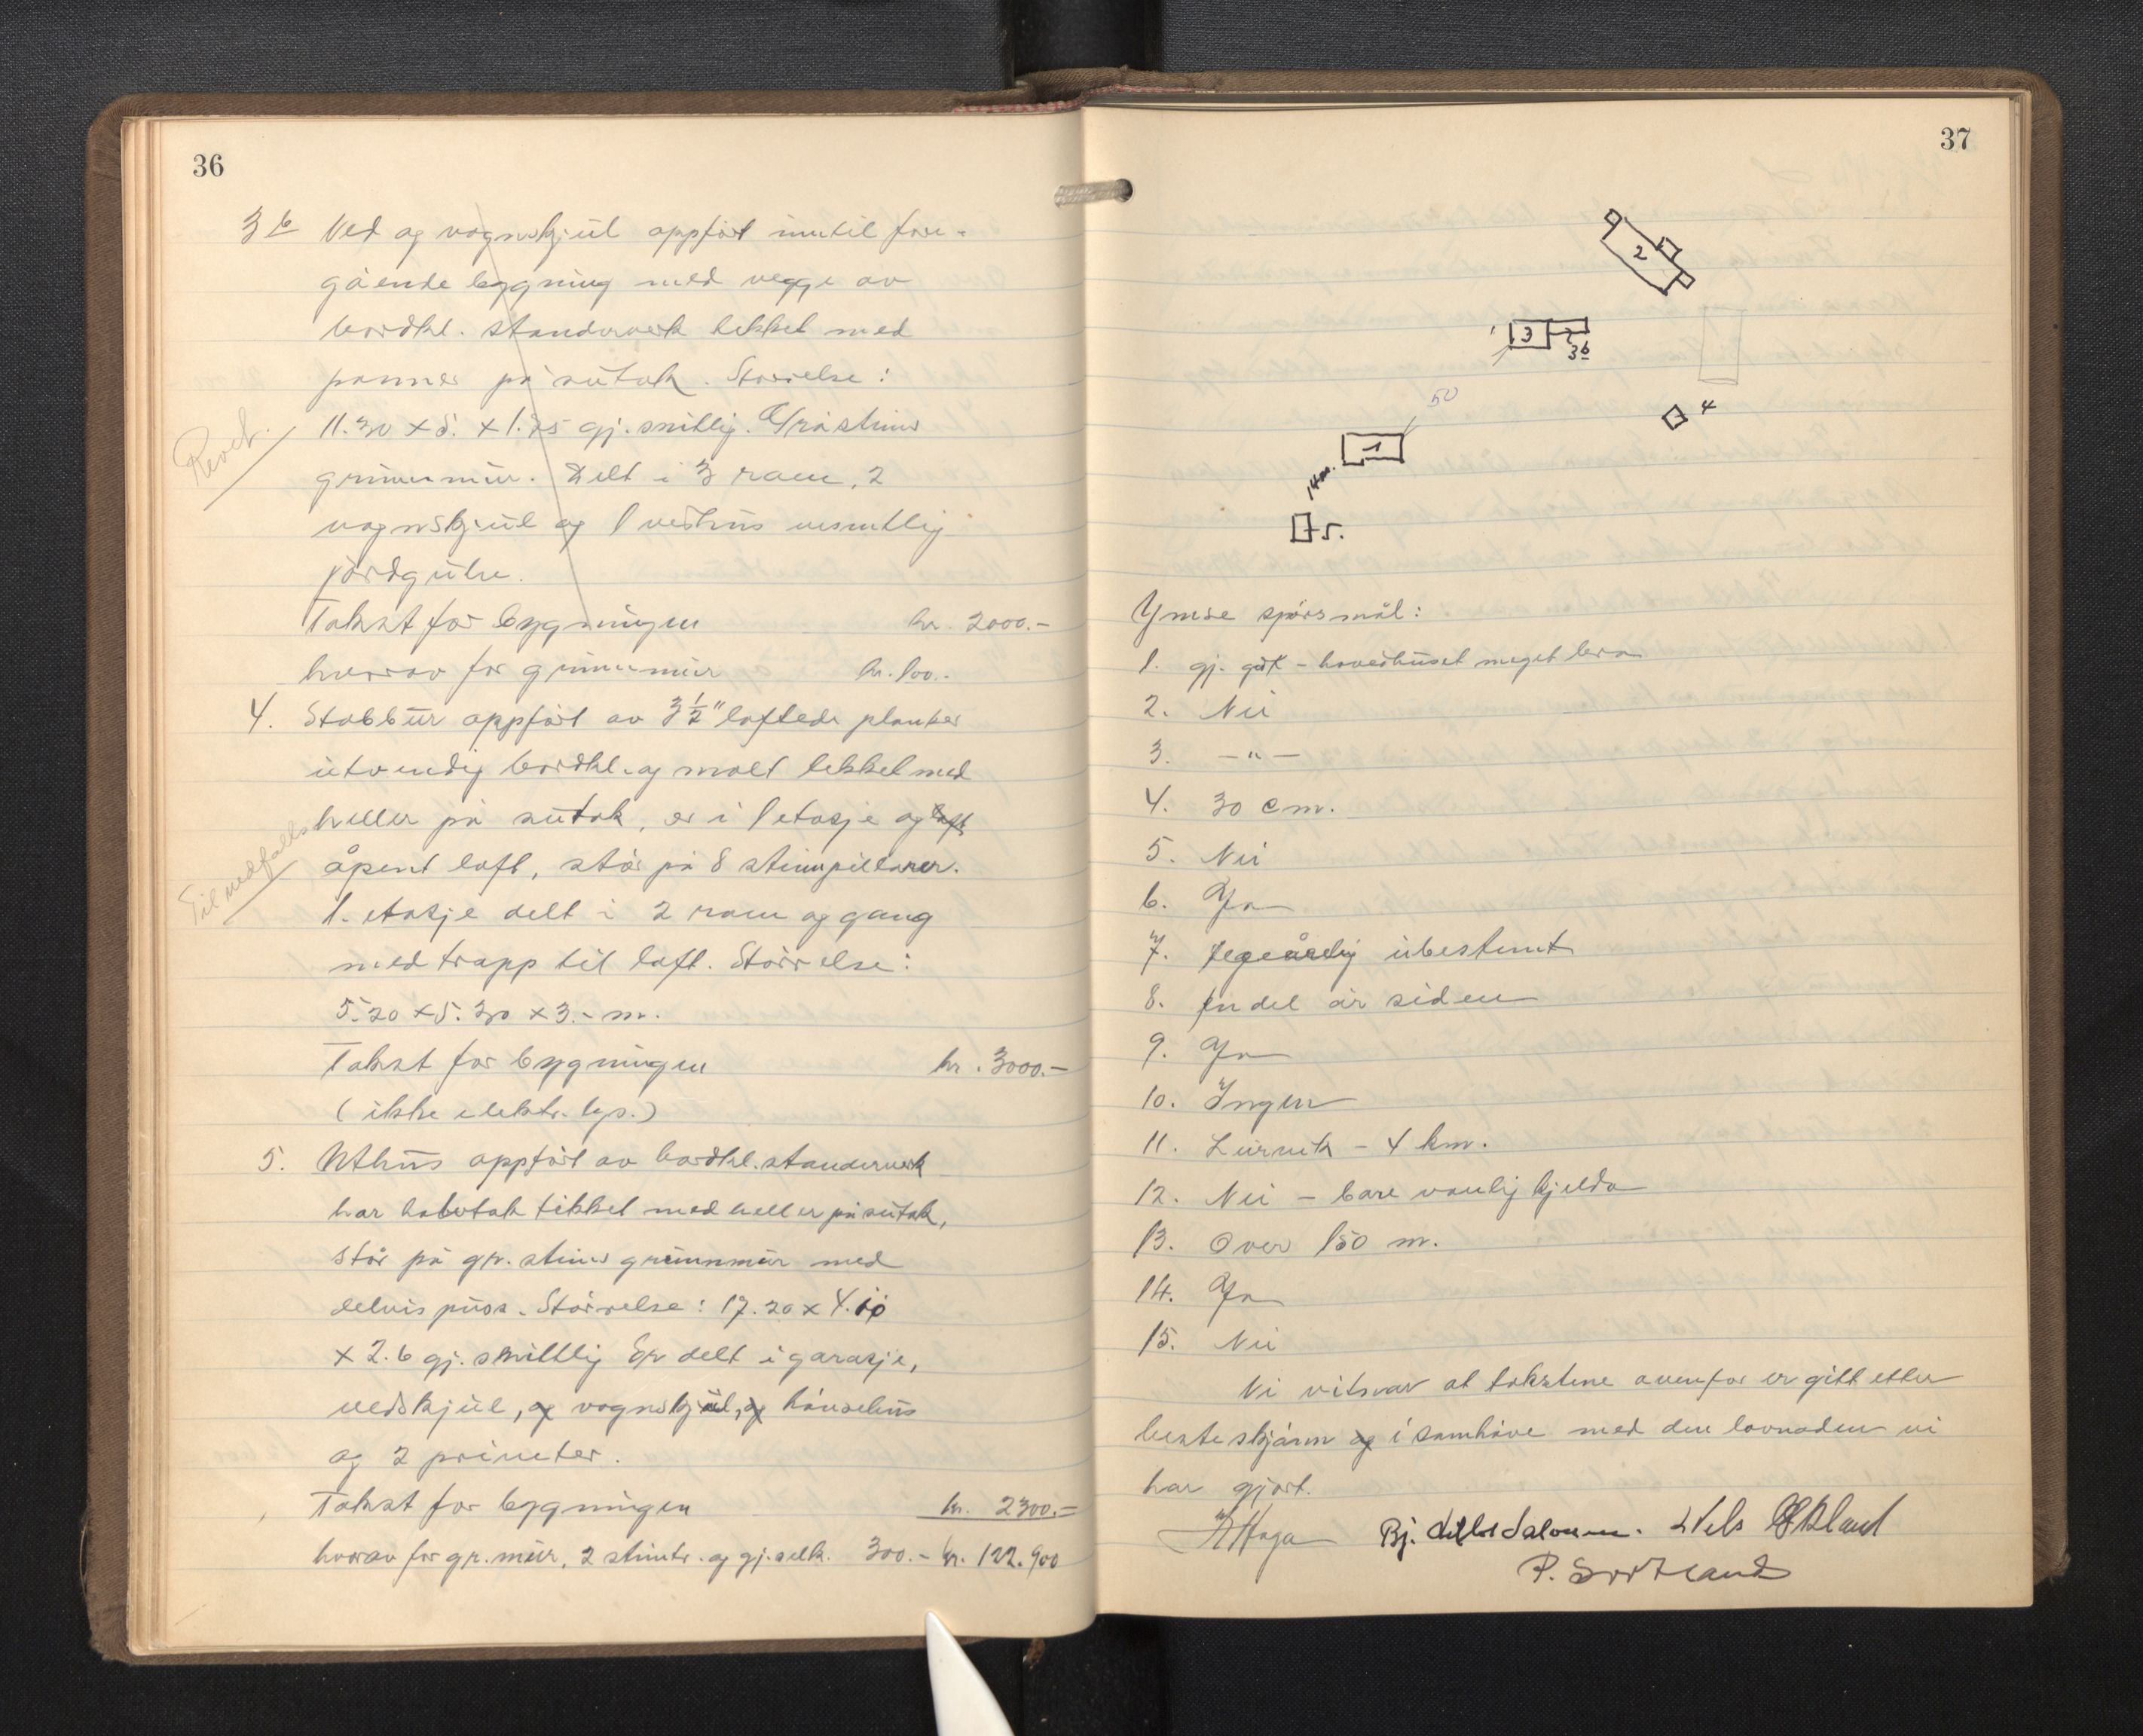 36
3 b Ved og vognskjul oppført inntil fore-
gående bygning med vegge av
bordkl. standerverk tekket med
panner på sutak. Størrelse:
11.30 x 5. x 1.75 gj. snittlig. Gråsteins
grunnmur. Delt i 3 rom, 2
vognskjul og 1 vedhus vesentlig
jordgulv.
Takst for bygningen kr. 2000.-
hvorav for grunnmur kr. 100.-
Revet.
4. Stabbur oppført av 3 1/2" laftede planker
utvendig bordkl. og malt tekket med
heller på sutak, er i 1 etasje og loft
åpent loft, står på 8 steinpillarer.
1. etasje delt i 2 rom og gang
med trapp til loft. Størrelse:
5.20 x 5.30 x 3.- m.
Takst for bygningen kr. 3000.-
(ikke elektr. lys.)
Til nedfalls
5. Uthus oppført av bordkl. standerverk
har halvtak tekket med heller på sutak,
står på gr. steins grunnmur med
delvis puss. Størrelse: 17.20 x 4.10
x 2.6 gj. snittlig Er delt i garasje,
vedskjul, og vognskjul, og hønsehus
og 2 priveter.
Takst for bygningen kr. 2300.-
hvorav for gr. mur, 2 steintr. og gj. selk. 300.- kr. 122.900
37
2
3
3b
4
50
1
14m.
5.
Ymse spørsmål:
1. gj. godt - hovedhuset meget bra
2. Nei
3. - " -
4. 30 cm.
5. Nei
6. Ja
7. Jegeårlig ubestemt
8. En del år siden
9. Ja
10. Ingen
11. Leirvik - 4 km.
12. Nei - bare vanlig kjelda
13. Over 150 m.
14. Ja
15. Nei
Vi vitnar at takstene ovenfor er gitt etter
beste skjønn og i samhøve med den lovnaden vi
har gjort.
Haga Bj. Nels Økland
P. Sortland